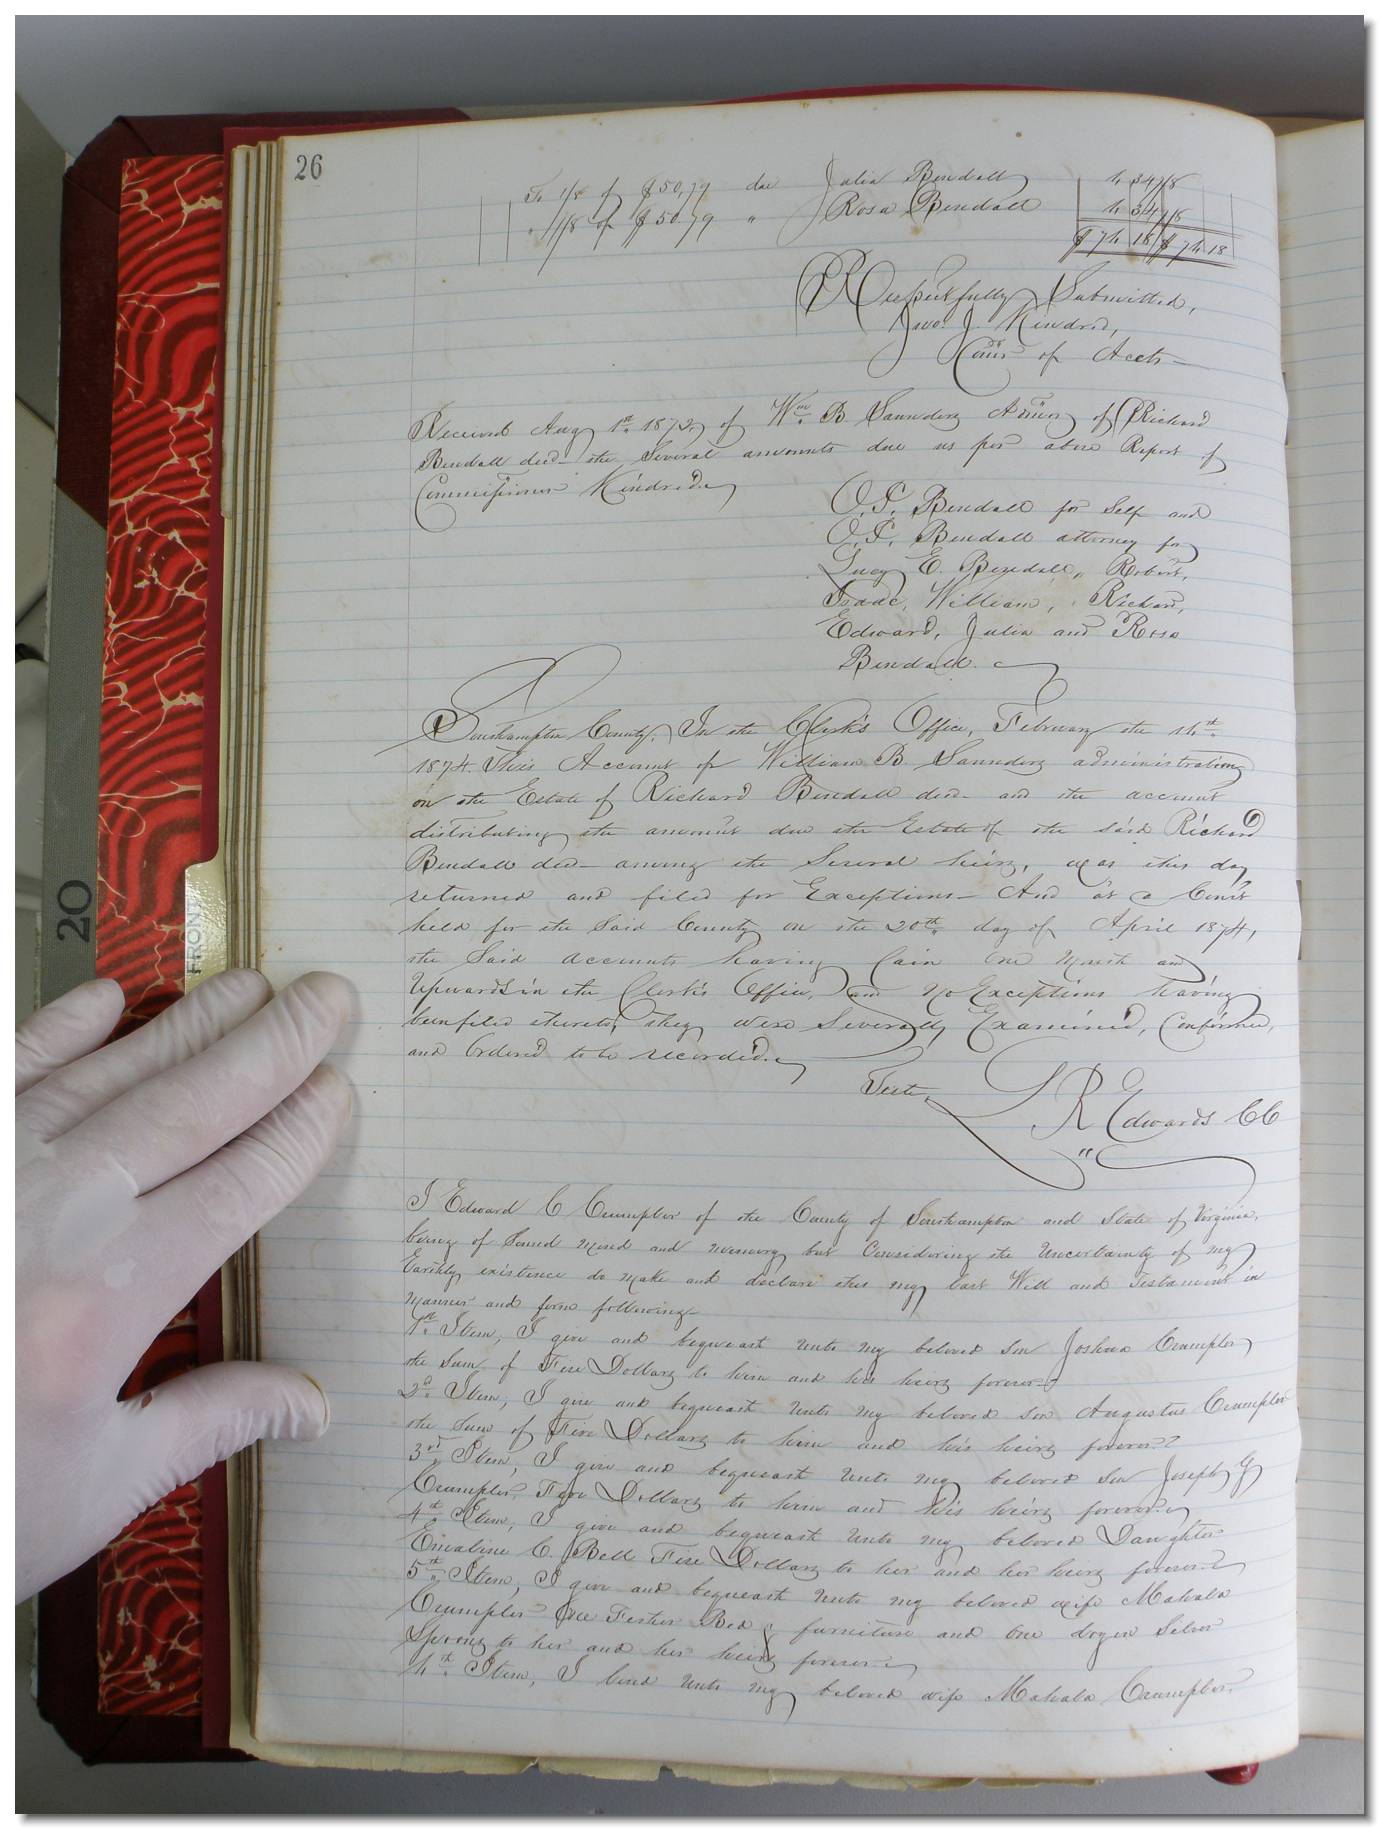 26
To 1/8 of $50.79 due Julia Bendall 6 34 7/8
" 1/8 of $50.79 " Rosa Bendall 6 34 7/8
$76 18 $76 18
Respectfully Submitted,
Jno. J. Kindred,
Comr of Accts
Received Aug 1st 1872, of Wm B. Saunders Admor of Richard
Bendall decd the Several amounts due us per above Report of
Commissioner Kindred.
O.P. Bendall for Self and
O.P. Bendall attorney for
Lucy E. Bendall, Robert,
Isaac, William, Richard,
Edward, Julia and Rosa
Bendall.
Southampton County, In the Clerk's Office, February the 16th
1874. This Account of William B. Saunders administrating
on the Estate of Richard Bendall decd and the account
distributing the amount due the Estate of the said Richard
Bendall decd among the Several heirs, was this day
returned and filed for Exceptions And at a Court
held for the Said County on the 20th day of April 1874,
the Said accounts having lain One Month and
Upwards in the Clerk's Office, and no Exceptions having
been filed thereto, they were Severally Examined, Confirmed,
and Ordered to be recorded.
Teste,
L R Edwards CC
I Edward C Crumpler of the County of Southampton and State of Virginia,
being of Sound Mind and memory but Considering the Uncertainty of my
Earthly existence do make and declare this my last Will and Testament in
Manner and form following
1st Item, I give and bequeath unto my beloved Son Joshua Crumpler
the Sum of Five Dollars to him and his heirs forever
2d Item, I give and bequeath unto my beloved son Augustus Crumpler
the Sum of Five Dollars to him and his heirs forever
3rd Item, I give and bequeath unto my beloved Son Joseph G
Crumpler Five Dollars to him and his heirs forever.
4th Item, I give and bequeath unto my beloved Daughter
Emaline C. Bell Five Dollars to her and her heirs forever.
5th Item, I give and bequeath unto my beloved wife Mahala
Crumpler One Feather Bed & furniture and One dozen Silver
Spoons to her and her heirs forever.
6th Item, I lend unto my beloved wife Mahala Crumpler
20
FRONT